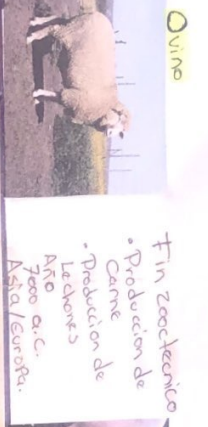 Ovino
Fin zootecnico
• Produccion de
Carne
• Produccion de
Lechones
Año
7000 a.C.
Asia/Europa.